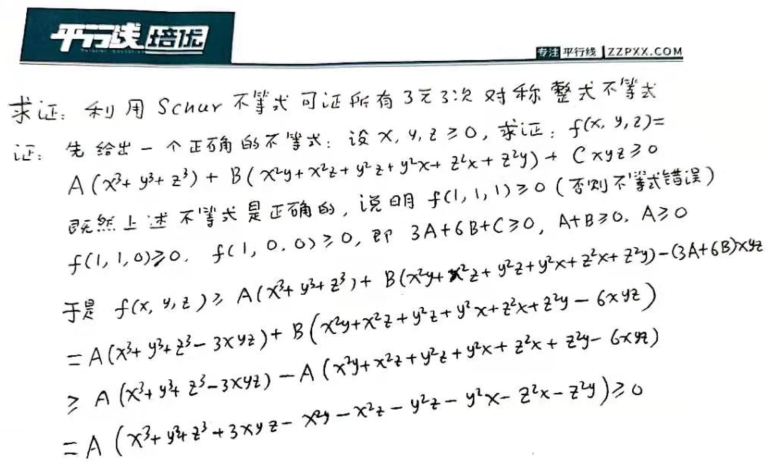 平行线培优
专注平行线 ZZPXX.COM
求证: 利用Schur不等式可证所有3元3次对称整式不等式
证: 先给出一个正确的不等式: 设x, y, z ≥ 0, 求证: f(x, y, z) =
A(x³+y³+z³) + B(x²y+x²z+y²z+y²x+z²x+z²y) + Cxyz ≥ 0
既然上述不等式是正确的, 说明 f(1, 1, 1) ≥ 0 (否则不等式错误)
f(1, 1, 0) ≥ 0, f(1, 0, 0) ≥ 0, 即 3A+6B+C ≥ 0, A+B ≥ 0, A ≥ 0
于是 f(x, y, z) ≥ A(x³+y³+z³) + B(x²y+x²z+y²z+y²x+z²x+z²y) - (3A+6B)xyz
= A(x³+y³+z³-3xyz) + B(x²y+x²z+y²z+y²x+z²x+z²y-6xyz)
≥ A(x³+y³+z³-3xyz) - A(x²y+x²z+y²z+y²x+z²x+z²y-6xyz)
= A(x³+y³+z³+3xyz-x²y-x²z-y²z-y²x-z²x-z²y) ≥ 0